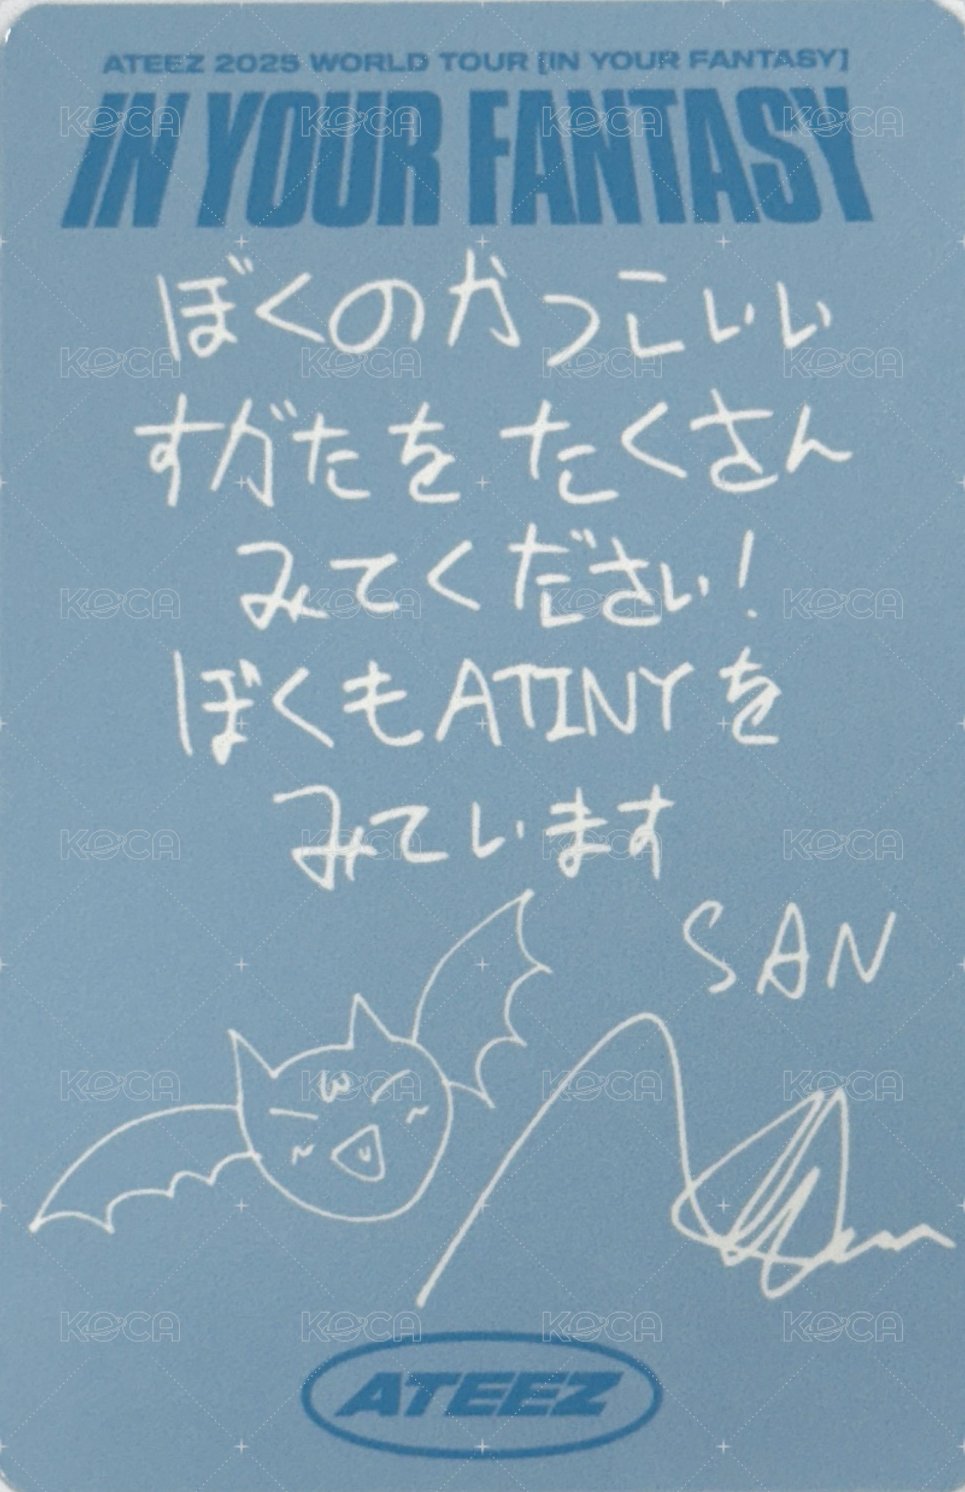 ATEEZ 2025 WORLD TOUR [IN YOUR FANTASY]
IN YOUR FANTASY
ぼくのかっこいい
すがたをたくさん
みてください!
ぼくもATINYを
みています
SAN
ATEEZ
KOCA